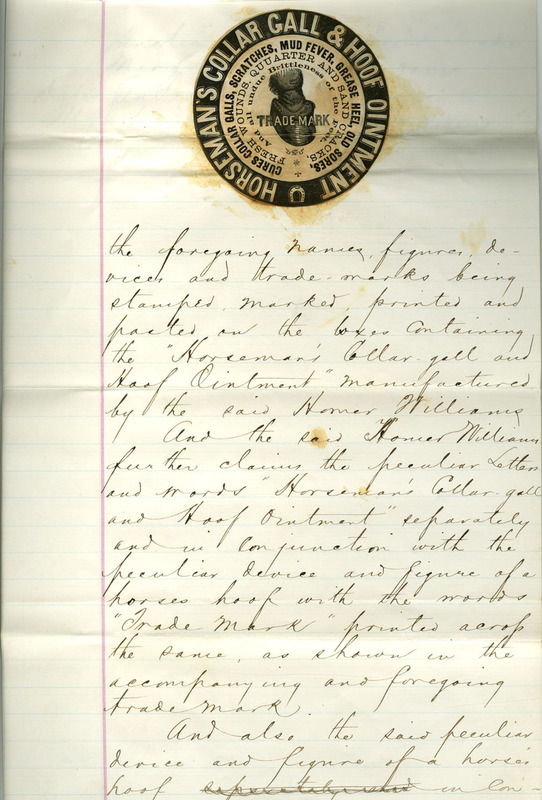 HORSEMAN'S COLLAR GALL & HOOF OINTMENT
CURES COLLAR GALLS, SCRATCHES, MUD FEVER, GREASE HEEL, OLD SORES,
FRESH WOUNDS, QUUARTER AND SAND CRACKS,
And all undue Brittleness of the Feet.
TRADE MARK
the foregoing names, figures, de-
vices and trade-marks being
stamped, marked, printed and
pasted on the boxes containing
the "Horseman's Collar-gall and
Hoof Ointment" manufactured
by the said Homer Williams
And the said Homer Williams
further claims the peculiar Letters
and words "Horseman's Collar-gall
and Hoof Ointment" separately
and in conjunction with the
peculiar device and figure of a
horses hoof with the words
"Trade Mark" printed across
the same, as shown in the
accompanying and foregoing
trade mark.
And also the said peculiar
device and figure of a horse's
hoof in con-